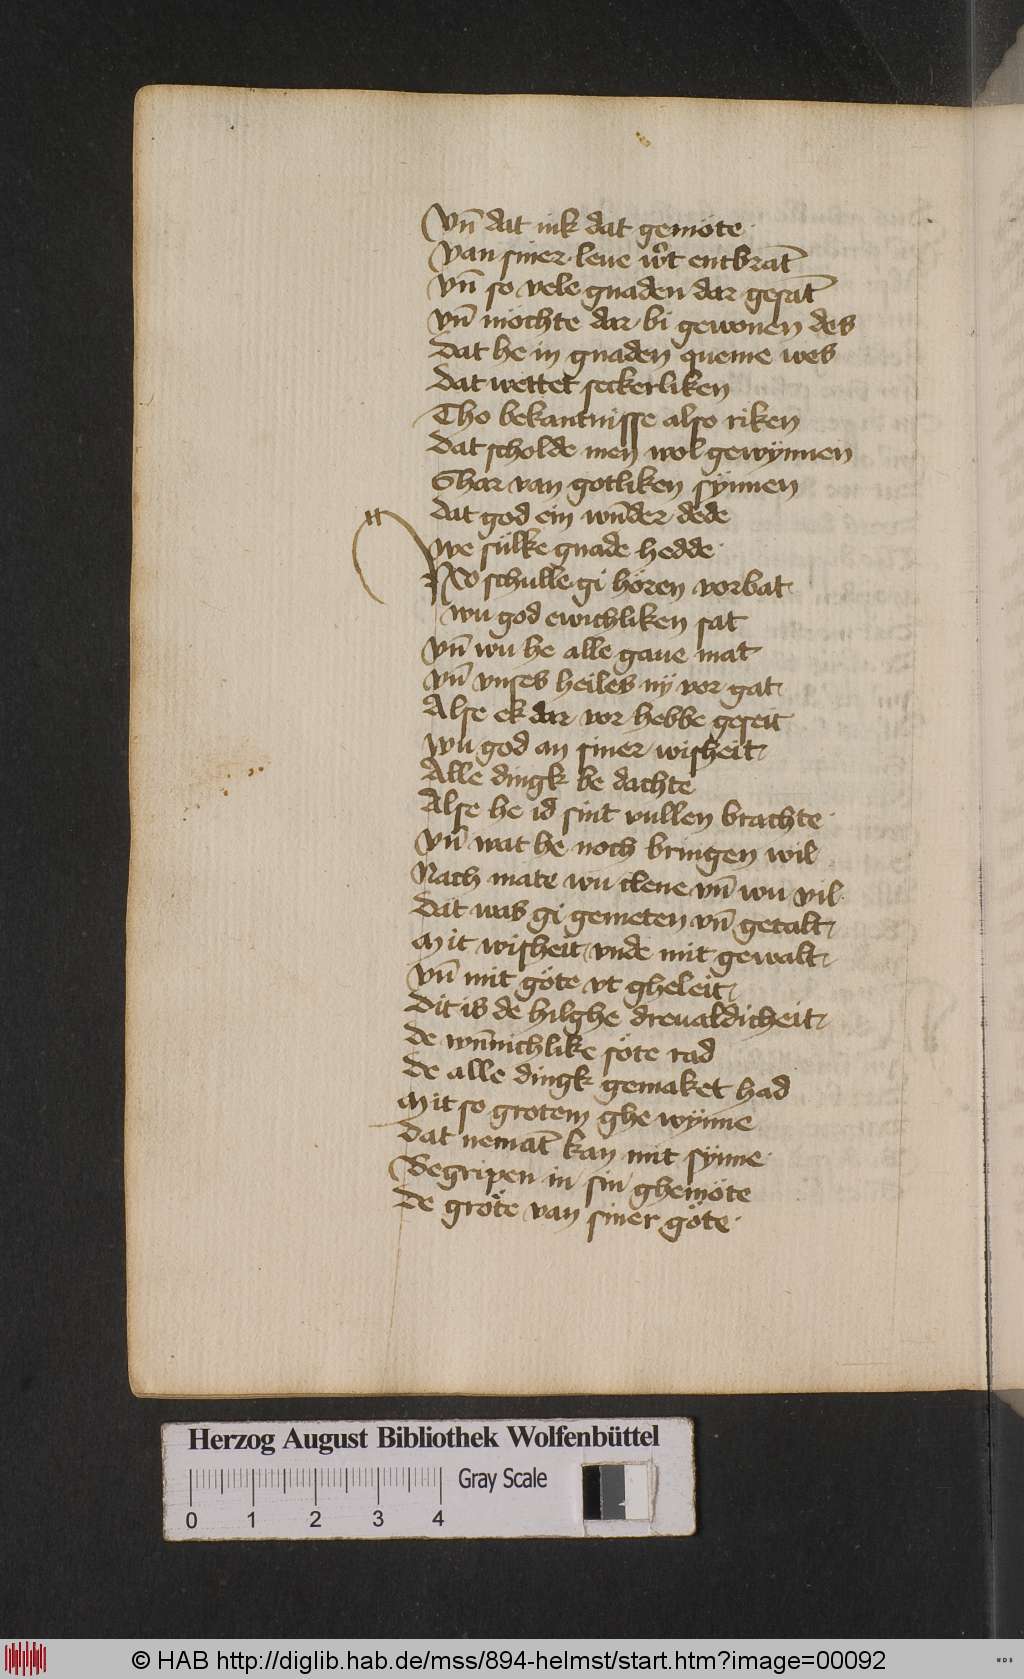 Vn̄ dat mk dat gemöte
Van siner leue wͦt entbrāt
Vn̄ so vele gnaden dar gesāt
Vn̄ möchte dar bi gewonen des
Dat he in gnaden queme wes
Dat wettet seckerliken
Tho bekantnisse also riken
Dat scholde men wol gewÿnnen
Ghar van gotliken sÿnnen
Dat god ein wn̄der dede
We sülke gnade hedde
NV schulle gi hören vorbat
wu god ewichliken sat
Vn̄ wu he alle gaue mat
Vn̄ vnses heiles nÿ vor gat
Alse ek dar vor hebbe geseit
Wu god an siner wisheit
Alle dingk be dachte
Alse he id sint vullen brachte
Vn̄ wat he noch bringen wil
Nach mate wu clene vn̄ wu vil
Dat was gi gemeten vn̄ getalt
Mit wisheit vnde mit gewalt
Vn̄ mit göte vt gheleit
Dit is de hilghe dreualdicheit
De wn̄nichlike söte rad
De alle dingk gemaket had
Mit so grotem ghe wÿnne
Dat nemāt kan mit sÿnne
Begripen in sin ghemöte
De gröte van siner göte
Herzog August Bibliothek Wolfenbüttel
Gray Scale
0 1 2 3 4
© HAB http://diglib.hab.de/mss/894-helmst/start.htm?image=00092